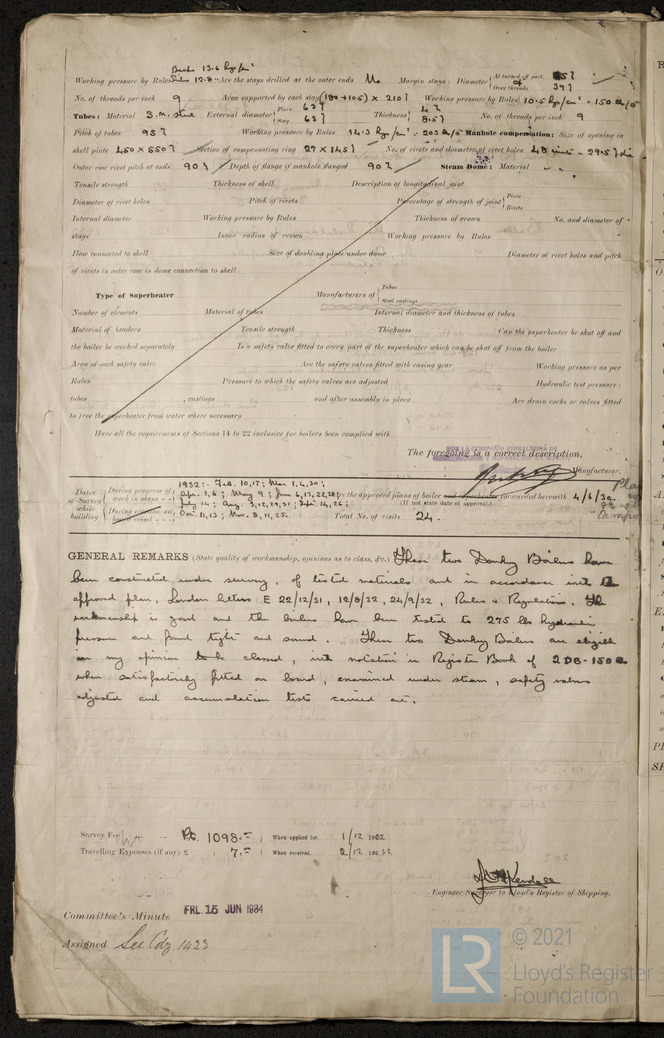 Back 13.6 kgs/cm²
Working pressure by Rules Sides 12.8 Are the stays drilled at the outer ends No Margin stays: Diameter { At turned off part, or Over threads 39
No. of threads per inch 9 Area supported by each stay (180+105) × 210 Working pressure by Rules 10.5 kgs/cm² = 150 lb/□"
Tubes: Material S.M. steel External diameter { Plain 63 Stay 63 Thickness { 4 8.5 No. of threads per inch 9
Pitch of tubes 95 Working pressure by Rules 14.3 kgs/cm² = 203 lb/□" Manhole compensation: Size of opening in
shell plate 450 × 550 Section of compensating ring 27 × 145 No. of rivets and diameter of rivet holes 48 - 29.5 dia
Outer row rivet pitch at ends 90 Depth of flange if manhole flanged 90 Steam Dome: Material -
Tensile strength Thickness of shell Description of longitudinal joint
Diameter of rivet holes Pitch of rivets Percentage of strength of joint { Plate Rivets
Internal diameter Working pressure by Rules Thickness of crown No. and diameter of
stays Inner radius of crown Working pressure by Rules
How connected to shell Size of doubling plate under dome Diameter of rivet holes and pitch
of rivets in outer row in dome connection to shell
Type of Superheater Manufacturers of { Tubes Steel castings
Number of elements Material of tubes Internal diameter and thickness of tubes
Material of headers Tensile strength Thickness Can the superheater be shut off and
the boiler be worked separately Is a safety valve fitted to every part of the superheater which can be shut off from the boiler
Area of each safety valve Are the safety valves fitted with easing gear Working pressure as per
Rules Pressure to which the safety valves are adjusted Hydraulic test pressure:
tubes , castings and after assembly in place Are drain cocks or valves fitted
to free the superheater from water where necessary
Have all the requirements of Sections 14 to 22 inclusive for boilers been complied with
The foregoing is a correct description,
Manufacturer.
Dates of Survey while building { During progress of work in shops - - 1932:- Feb. 10,17; Mar. 1,4,30; Apr. 1,6; May 9; Jun 6,13,22,28; July 14; Aug. 3,12,29,31; Sept. 14,26; Oct. 11,13; Nov. 3,11,25.
During erection on board vessel - - -
Are the approved plans of boiler and superheater forwarded herewith 4/6/30
(If not state date of approval.)
Total No. of visits 24.
GENERAL REMARKS (State quality of workmanship, opinions as to class, &c.) These two Donkey Boilers have
been constructed under survey, of tested materials and in accordance with the
approved plan, London letters E 22/12/31, 12/8/32, 24/9/32, Rules & Regulations. The
workmanship is good and the boilers have been tested to 275 lbs hydraulic
pressure and found tight and sound. These two Donkey Boilers are eligible
in my opinion to be classed, with notation in Register Book of 2DB-150 lb
when satisfactorily fitted on board, examined under steam, safety valves
adjusted and accumulation tests carried out.
Survey Fee ... ... Pts. 1098.= When applied for, 1/12 1932
Travelling Expenses (if any) £ 7.= When received, 2/12 1932
Kendall
Engineer Surveyor to Lloyd's Register of Shipping.
Committee's Minute FRI. 15 JUN 1934
Assigned See Cdz. 1423
LR
© 2021
Lloyd's Register
Foundation